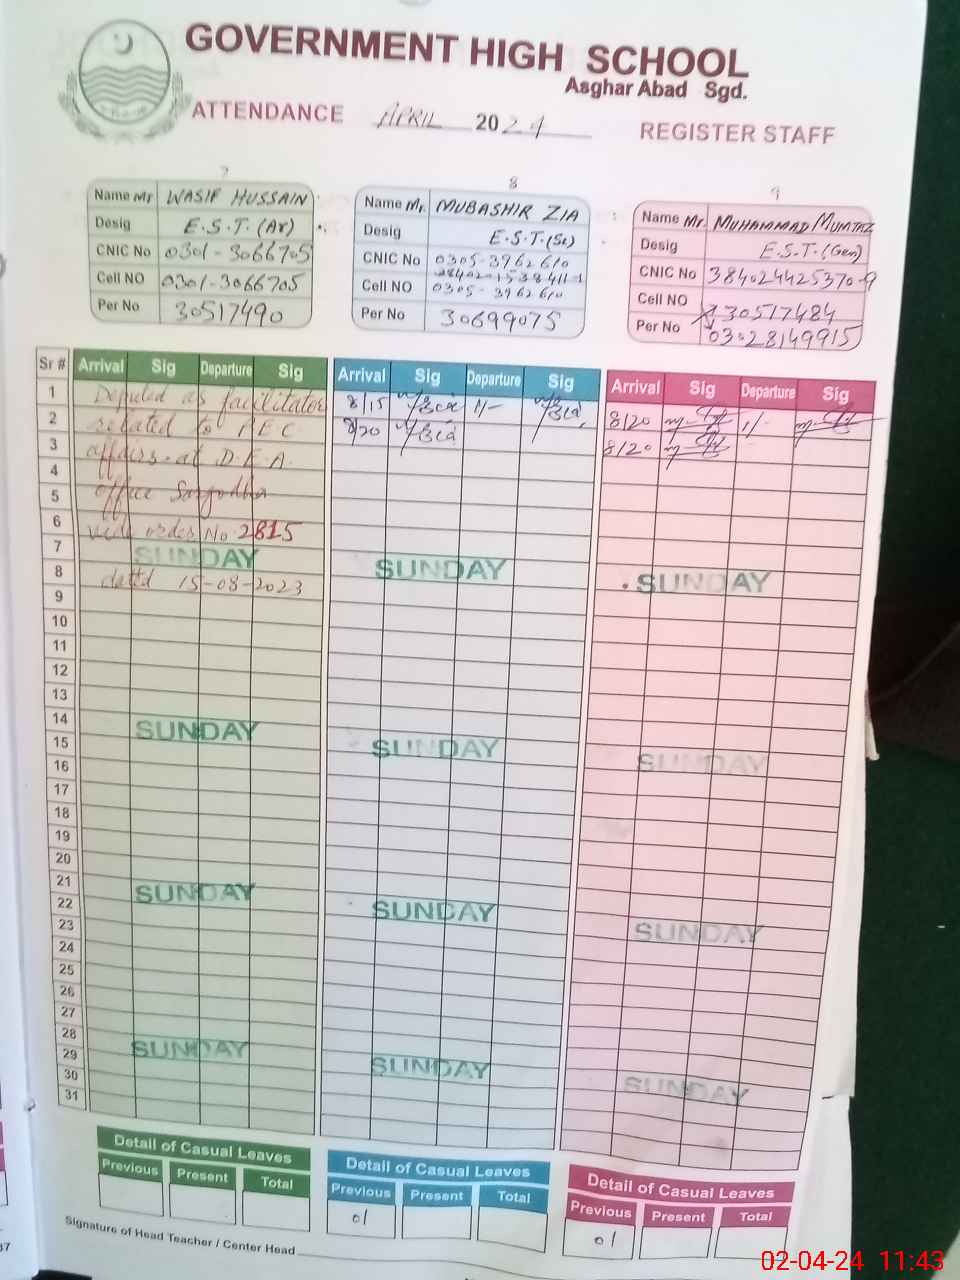 GOVERNMENT HIGH SCHOOL
Asghar Abad Sgd.
ATTENDANCE APRIL 2024 REGISTER STAFF
7
Name Mr WASIF HUSSAIN
Desig E.S.T.(Ar)
CNIC No 0301-3066705
Cell NO 0301-3066705
Per No 30517490
8
Name Mr. MUBASHIR ZIA
Desig E.S.T.(Sc)
CNIC No 0305-3962610
38402-1538411-1
Cell NO 0305-3962610
Per No 30699075
9
Name Mr. MUHAMMAD MUMTAZ
Desig E.S.T.(Gen)
CNIC No 384024425370-9
Cell NO 30517484
Per No 03028149915
Sr # Arrival Sig Departure Sig Arrival Sig Departure Sig Arrival Sig Departure Sig
1 Deputed as facilitator 8/15 1/- 8/20 1/-
2 related to PEC 8/20 8/20
3 affairs at D.E.A.
4
5 office Sargodha
6 vide order No 2815
7 SUNDAY SUNDAY SUNDAY
8 dated 15-08-2023
9
10
11
12
13
14 SUNDAY SUNDAY SUNDAY
15
16
17
18
19
20
21 SUNDAY SUNDAY SUNDAY
22
23
24
25
26
27
28 SUNDAY SUNDAY SUNDAY
29
30
31
Detail of Casual Leaves
Previous Present Total
Detail of Casual Leaves
Previous Present Total
01
Detail of Casual Leaves
Previous Present Total
01
Signature of Head Teacher / Center Head
37
02-04-24 11:43